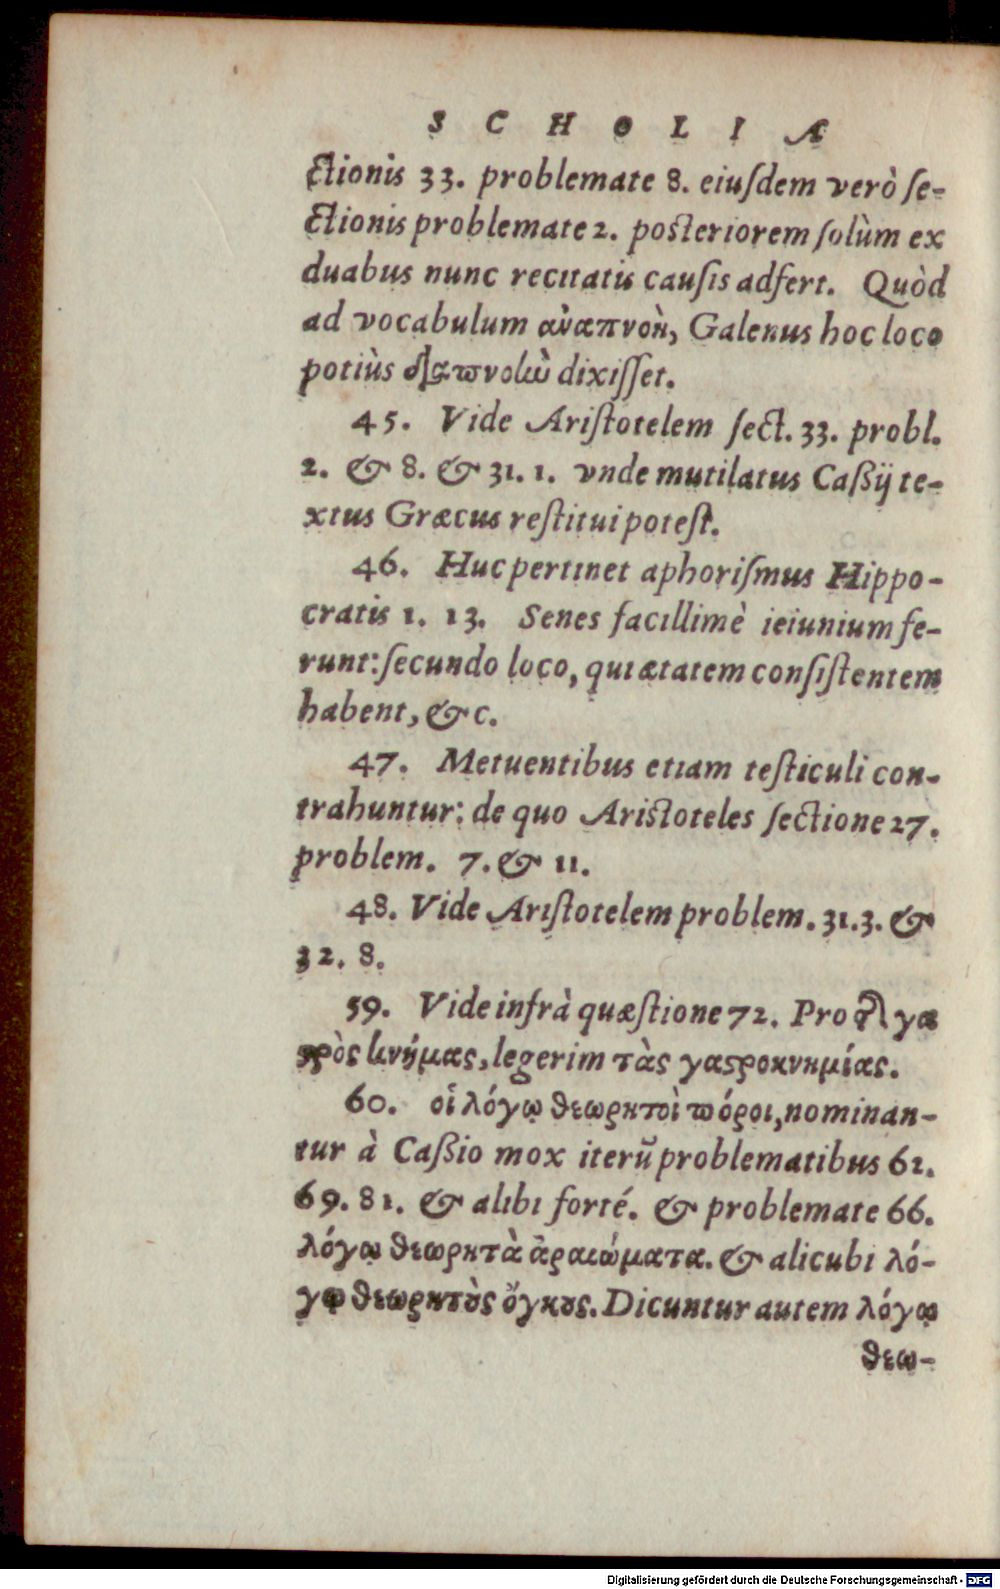 SCHOLIA
ctionis 33. problemate 8. eiuſdem verò ſe-
ctionis problemate 2. poſteriorem ſolùm ex
duabus nunc recitatis cauſis adfert. Quòd
ad vocabulum ἀναπνοὴ, Galenus hoc loco
potiùs διαπνοὴν dixiſſet.
45. Vide Ariſtotelem ſect. 33. probl.
2. & 8. & 31. 1. vnde mutilatus Caßij te-
xtus Græcus reſtitui poteſt.
46. Huc pertinet aphoriſmus Hippo-
cratis 1. 13. Senes facillimè ieiunium fe-
runt: ſecundo loco, qui ætatem conſiſtentem
habent, &c.
47. Metuentibus etiam teſticuli con-
trahuntur: de quo Ariſtoteles ſectione 27.
problem. 7. & 11.
48. Vide Ariſtotelem problem. 31.3. &
32. 8.
59. Vide infrà quæſtione 72. Pro γα
ςρὸς κνήμας, legerim τὰς γαςροκνημίας.
60. οἱ λόγῳ θεωρητοὶ πόροι, nominan-
tur à Caßio mox iterũ problematibus 62.
69. 81. & alibi forté. & problemate 66.
λόγῳ θεωρητὰ ἀραιώματα. & alicubi λό-
γῳ θεωρητοὺς ὄγκους. Dicuntur autem λόγῳ
θεω-
Digitalisierung gefördert durch die Deutsche Forschungsgemeinschaft - DFG